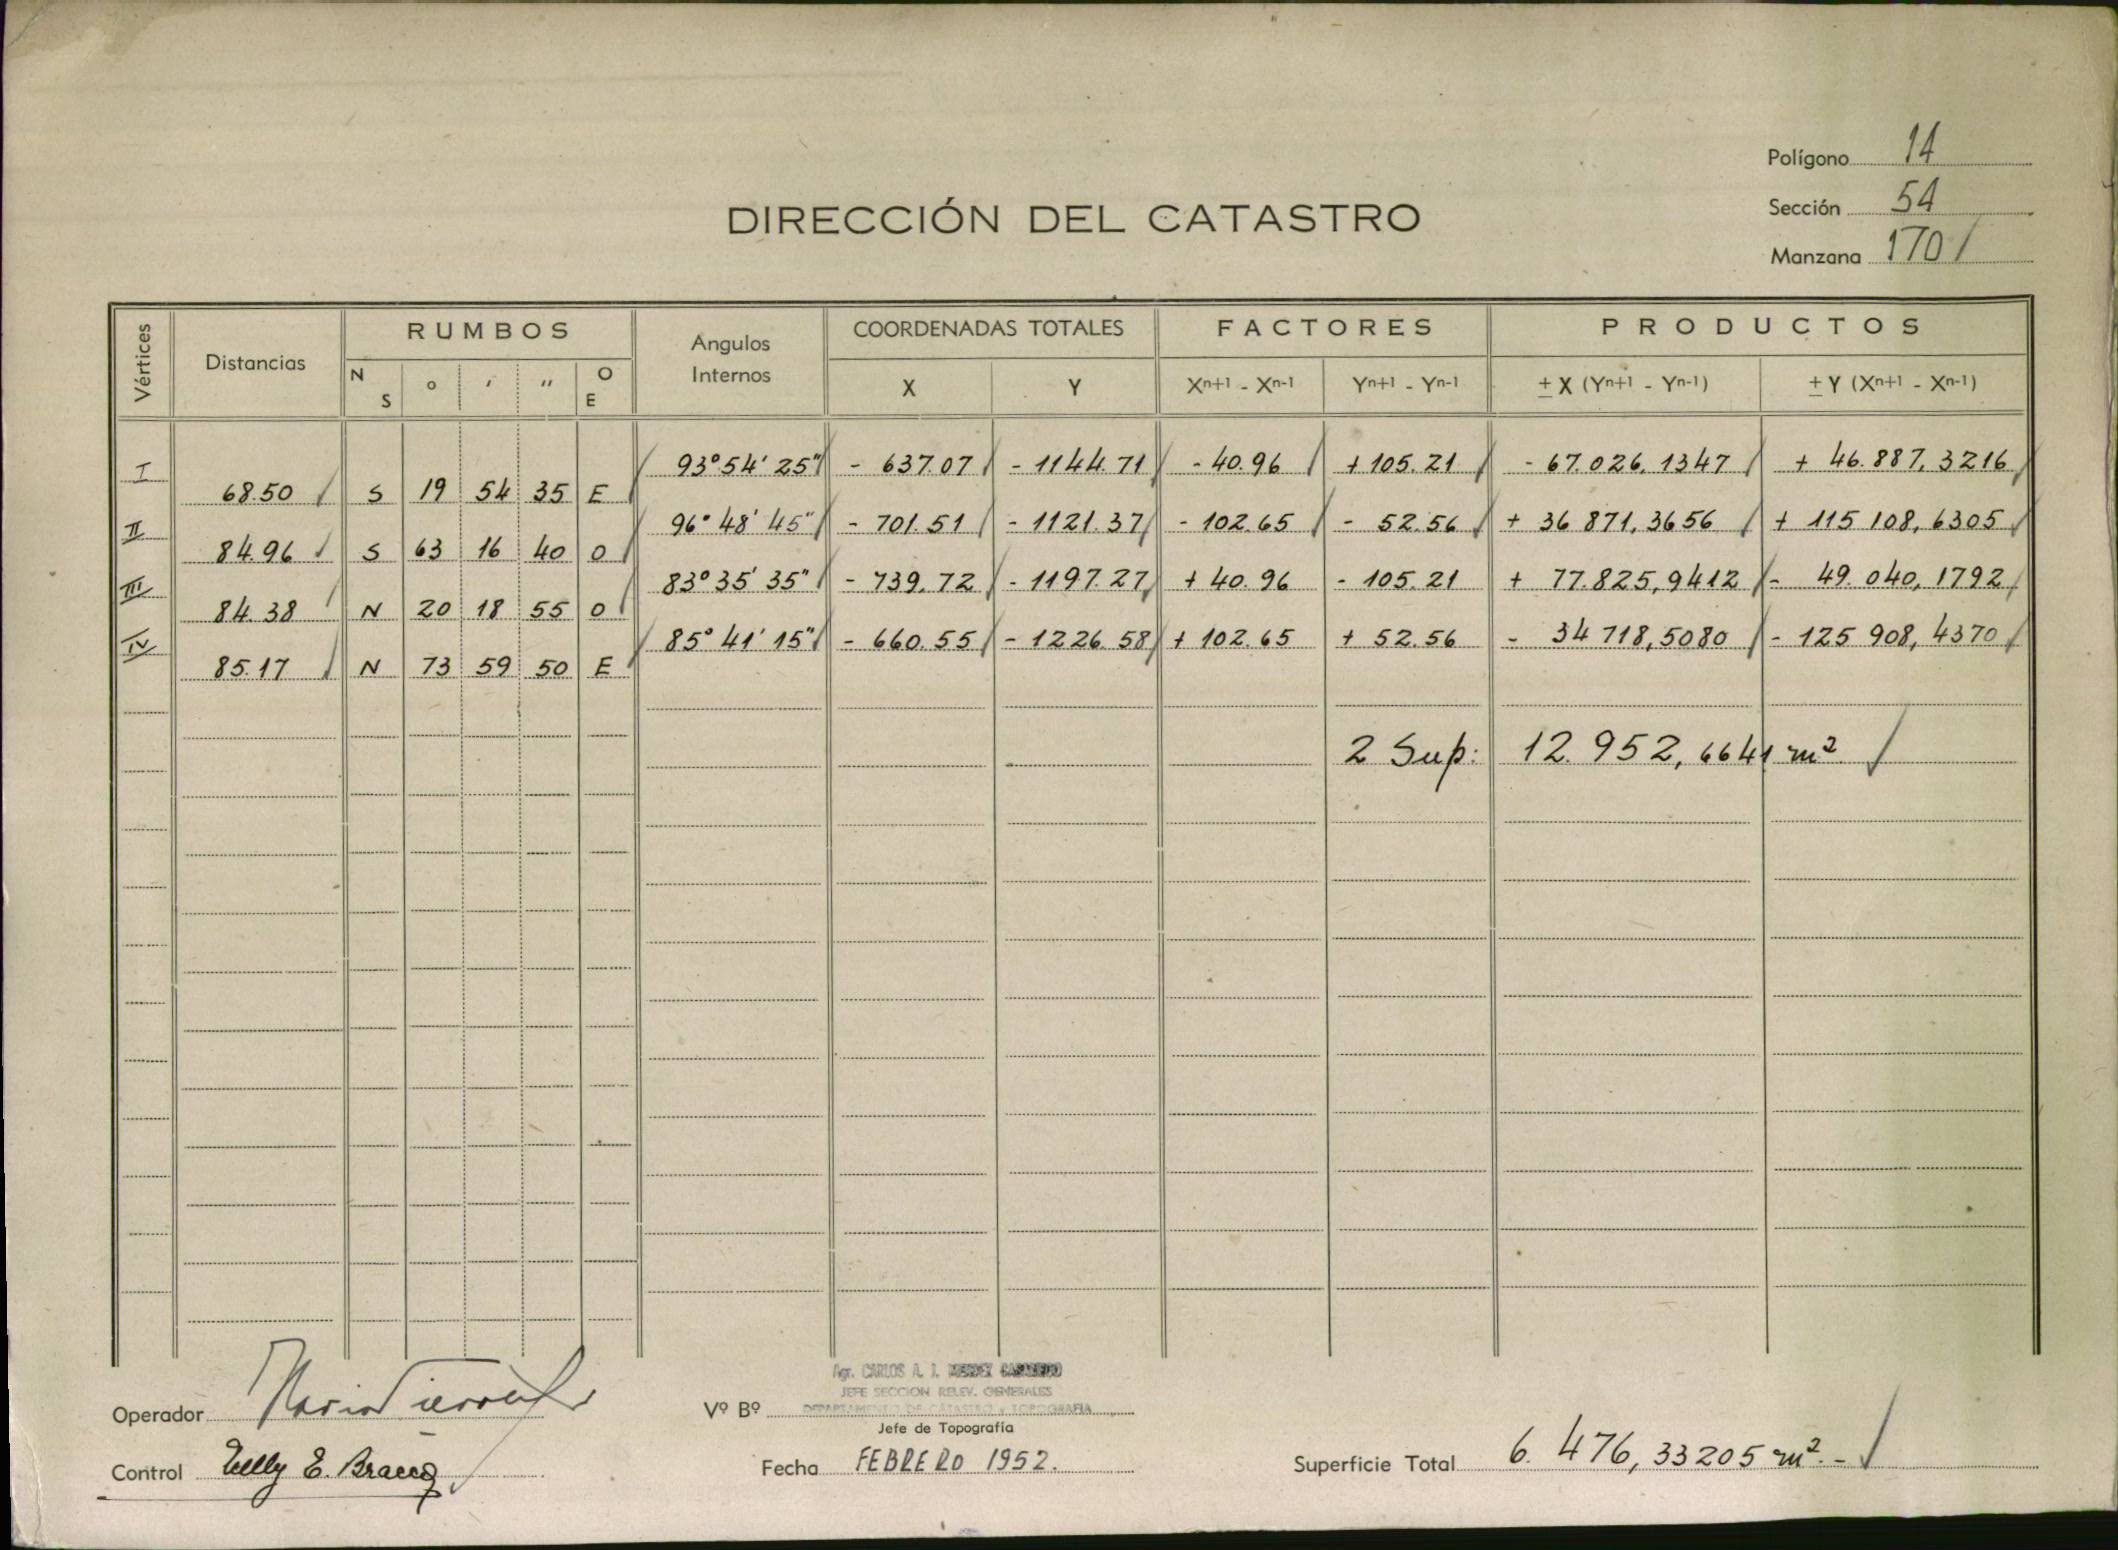 Polígono 14
Sección 54
Manzana 170
DIRECCIÓN DEL CATASTRO
Vértices Distancias RUMBOS Angulos Internos COORDENADAS TOTALES FACTORES PRODUCTOS
N S o ' " O E X Y Xn+1 - Xn-1 Yn+1 - Yn-1 ± X (Yn+1 - Yn-1) ± Y (Xn+1 - Xn-1)
I 93° 54' 25" - 637.07 - 1144.71 - 40.96 + 105.21 - 67.026,1347 + 46.887,3216
68.50 S 19 54 35 E
II 96° 48' 45" - 701.51 - 1121.37 - 102.65 - 52.56 + 36 871,3656 + 115 108,6305
84.96 S 63 16 40 O
III 83° 35' 35" - 739.72 - 1197.27 + 40.96 - 105.21 + 77.825,9412 - 49.040,1792
84.38 N 20 18 55 O
IV 85° 41' 15" - 660.55 - 1226.58 + 102.65 + 52.56 - 34 718,5080 - 125 908,4370
85.17 N 73 59 50 E
2 Sup: 12.952,6641 m²
Agr. CARLOS A. J.
JEFE SECCION RELEV. GENERALES
DEPARTAMENTO DE CATASTRO y TOPOGRAFIA
Operador
Vº Bº
Jefe de Topografía
Control Nelly E. Bracco
Fecha FEBRERO 1952.
Superficie Total 6.476,33205 m².-